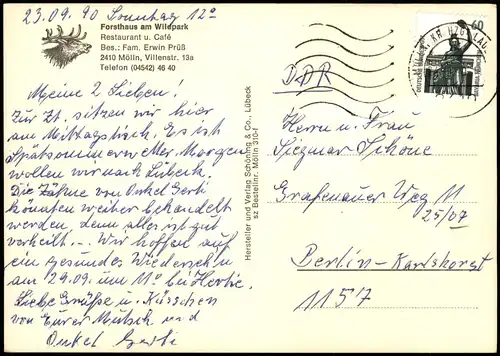 23.09.90 Sonntag 12°
Forsthaus am Wildpark
Restaurant u. Café
Bes.: Fam. Erwin Prüß
2410 Mölln, Villenstr. 13a
Telefon (04542) 46 40
Meine 2 Lieben!
Zur Zt. sitzen wir hier
am Mittagstisch. Es ist
Spätsommerwetter. Morgen
wollen wir nach Lübeck.
Die Zähne von Onkel Gerti
könnten weiter behandelt
werden, denn alles ist gut
verheilt... Wir hoffen auf
ein gesundes Wiedersehen
am 29.09. um 11° bei Hertie.
Liebe Grüße u. Küsschen
von Eurer Mutsch und
Onkel Gerti
Hersteller und Verlag Schöning & Co., Lübeck
sz Bestellnr. Mölln 310-f
60
DDR
Herrn u. Frau
Siegmar Schöne
Grafenauer Weg 11
25/07
Berlin-Karlshorst
1157